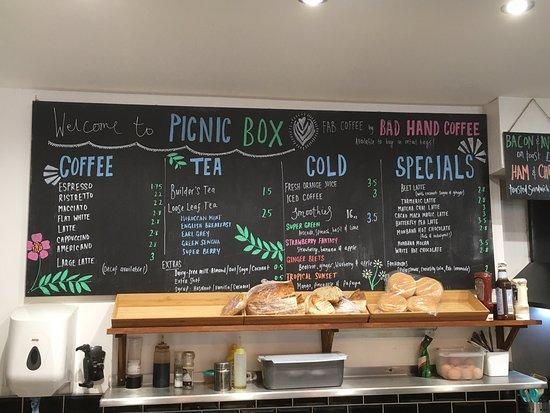 Welcome to PICNIC BOX
FAB COFFEE by BAD HAND COFFEE
Available to buy in retail bags!
COFFEE
ESPRESSO 1.75
RISTRETTO 2.2
MACCHIATO 2.2
FLAT WHITE
LATTE
CAPPUCCINO
AMERICANO
LARGE LATTE 3
(Decaf available!)
TEA
Builder's Tea 1.5
Loose Leaf Tea 2.5
MOROCCAN MINT
ENGLISH BREAKFAST
EARL GREY
GREEN SENCHA
SUPER BERRY
EXTRAS
Extra Shot
COLD
FRESH ORANGE JUICE 3.5
ICED COFFEE 3
Smoothies 3.5
SUPER GREEN
STRAWBERRY FANTASY
Strawberry, banana & apple
GINGER BEETS
Beetroot, ginger, blueberry & apple
TROPICAL SUNSET
Mango, Pineapple & Papaya
SPECIALS
BEET LATTE
TURMERIC LATTE
MATCHA CHAI LATTE
CACAO MACA MAGIC LATTE
BUTTERFLY PEA LATTE
MONBANA HOT CHOCOLATE
MONBANA MOCHA
WHITE HOT CHOCOLATE
BACON &
on toast
HAM &
toasted sandwich